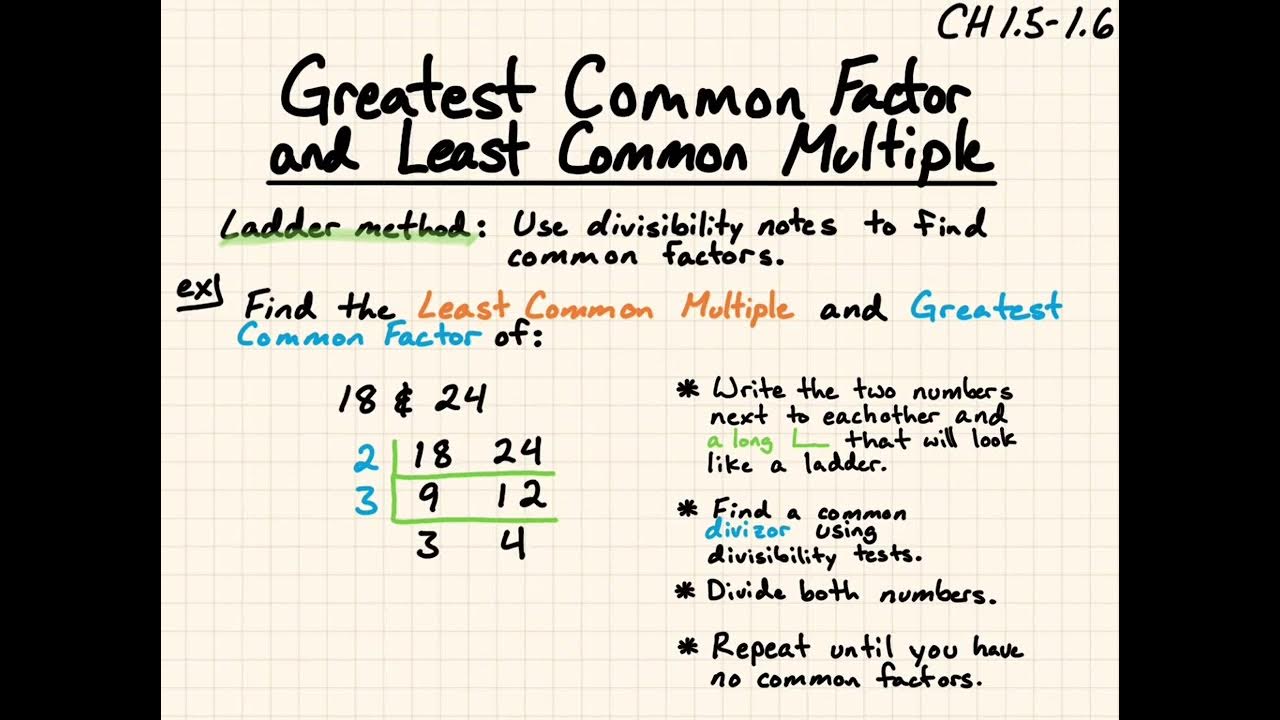 CH 1.5-1.6
Greatest Common Factor
and Least Common Multiple
Ladder method: Use divisibility notes to find
common factors.
ex) Find the Least Common Multiple and Greatest
Common Factor of:
18 & 24
2 18 24
3 9 12
3 4
* Write the two numbers
next to eachother and
a long that will look
like a ladder.
* Find a common
divizor using
divisibility tests.
* Divide both numbers.
* Repeat until you have
no common factors.